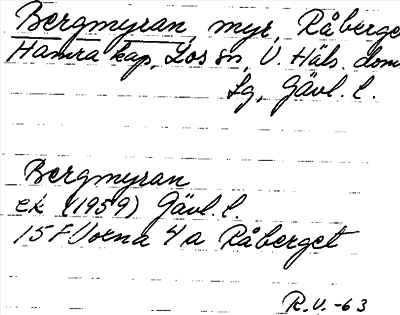 Bergmyran, myr, Råberge
Hamra kap, Los sn, V. Häls. doms
Lg, Gävl. l.
Bergmyran
ek (1959) Gävl. l.
15F Voxna 4a Råberget
R.V.-63